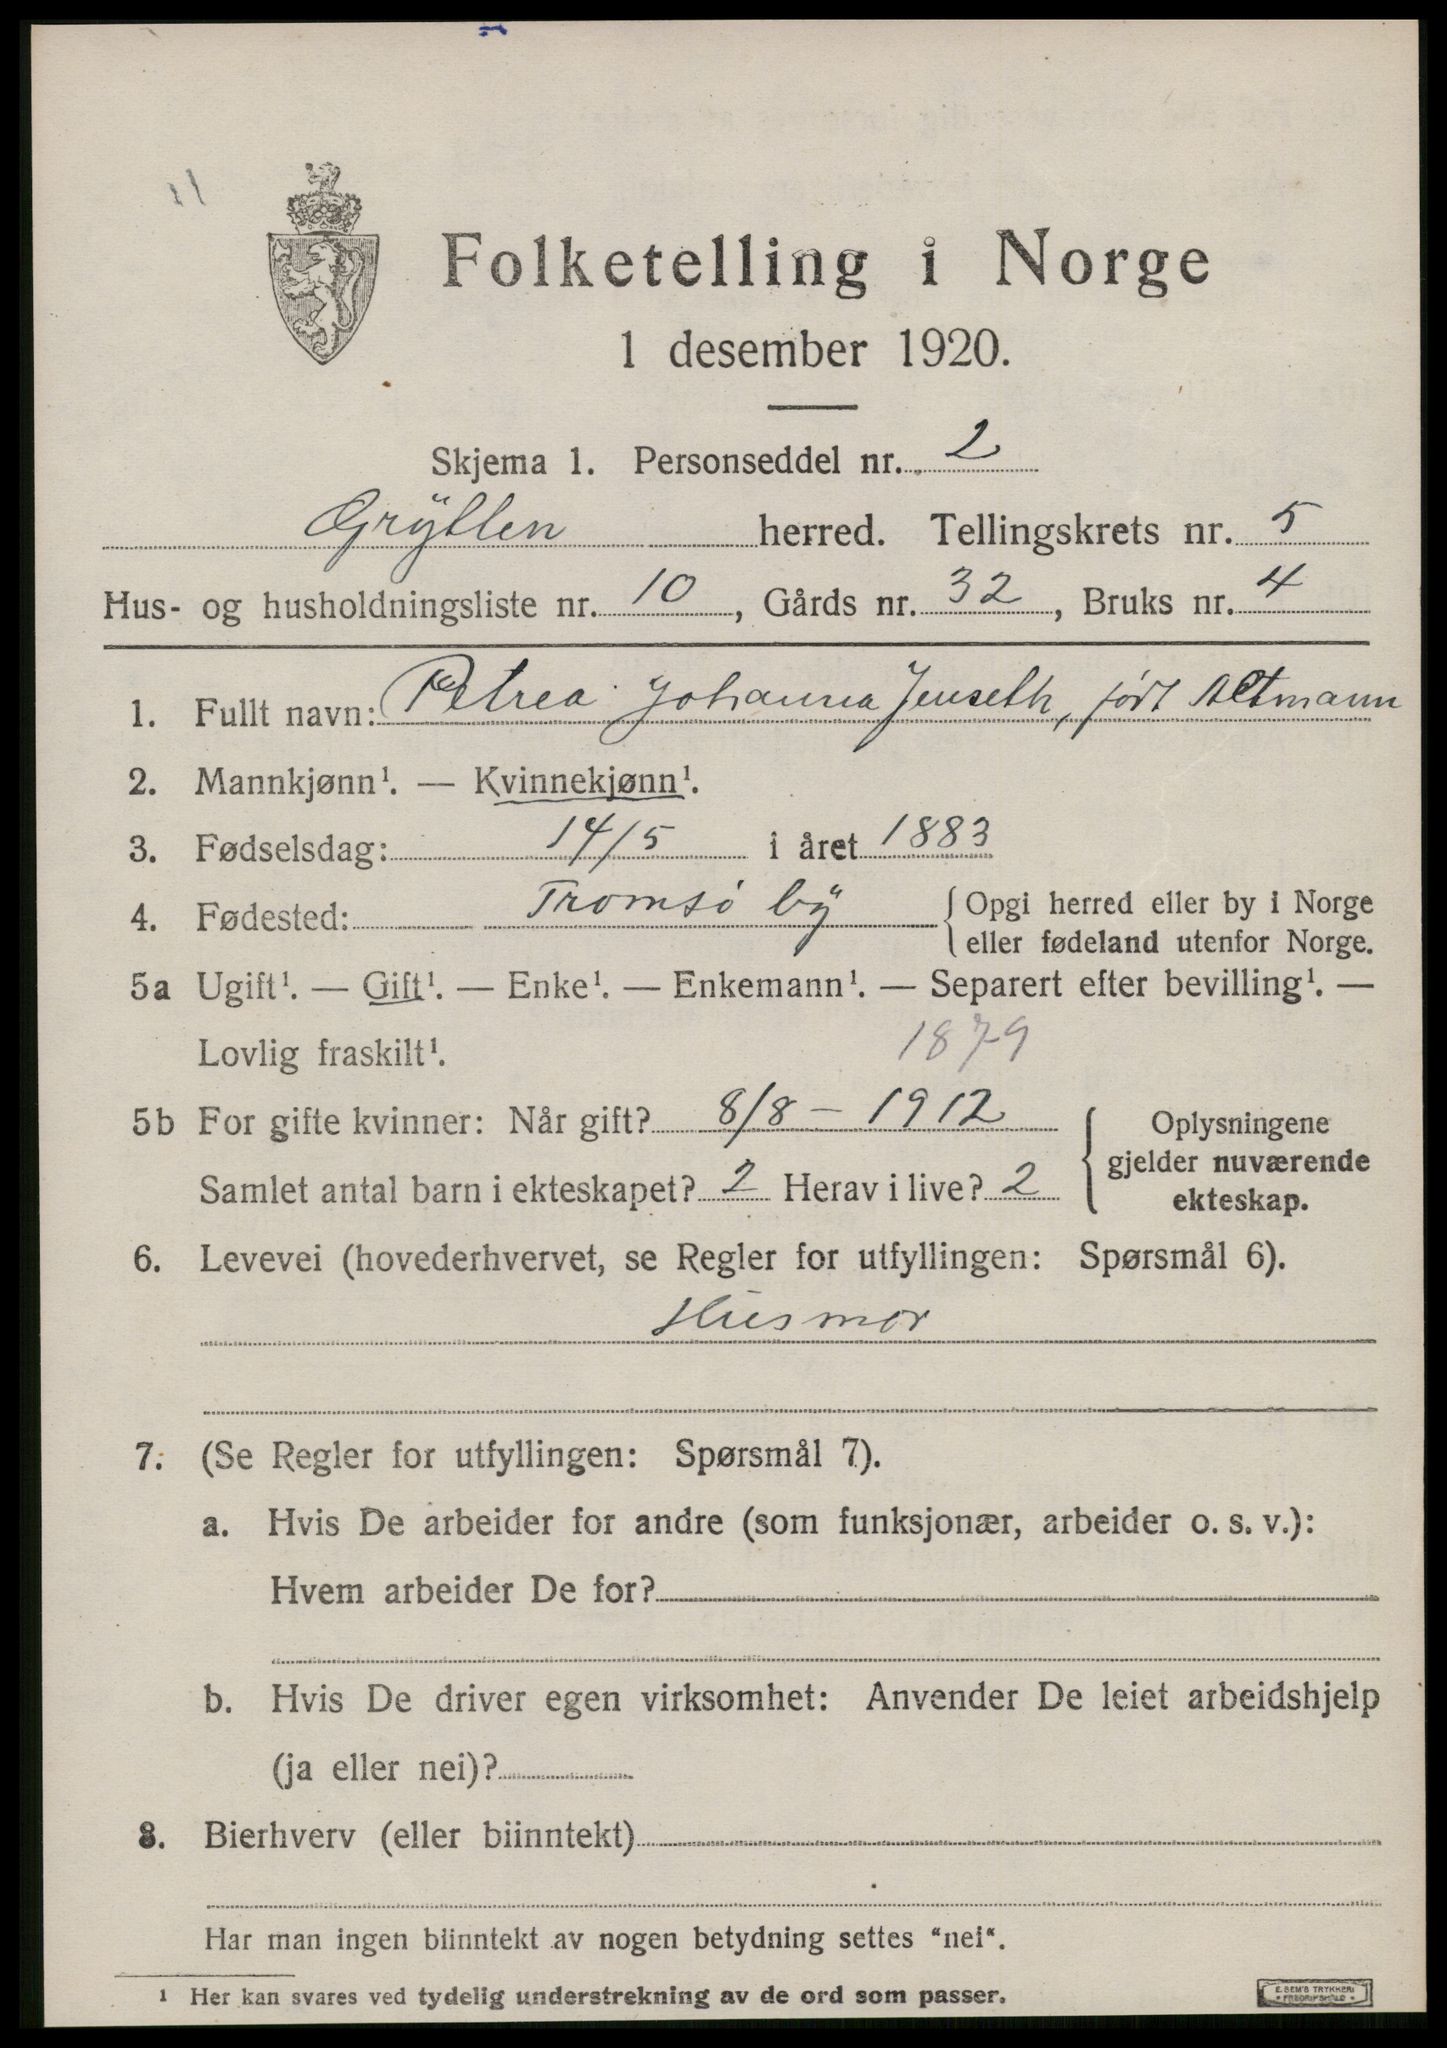 11
Folketelling i Norge
1 desember 1920.
Skjema 1. Personseddel nr. 2
Grÿtten herred. Tellingskrets nr. 5
Hus- og husholdningsliste nr. 10, Gårds nr. 32, Bruks nr. 4
1. Fullt navn: Petrea Johanna Jenseth, født Altmann
2. Mannkjønn¹. — Kvinnekjønn¹.
3. Fødselsdag: 14/5 i året 1883
4. Fødested: Tromsö bÿ { Opgi herred eller by i Norge
eller fødeland utenfor Norge.
5a Ugift¹. — Gift¹. — Enke¹. — Enkemann¹. — Separert efter bevilling¹. —
Lovlig fraskilt¹. 1879
5b For gifte kvinner: Når gift? 8/8 – 1912
Samlet antal barn i ekteskapet? 2 Herav i live? 2
{ Oplysningene
gjelder nuværende
ekteskap.
6. Levevei (hovederhvervet, se Regler for utfyllingen: Spørsmål 6).
Husmor
7. (Se Regler for utfyllingen: Spørsmål 7).
a. Hvis De arbeider for andre (som funksjonær, arbeider o. s. v.):
Hvem arbeider De for?
b. Hvis De driver egen virksomhet: Anvender De leiet arbeidshjelp
(ja eller nei)?
8. Bierhverv (eller biinntekt)
Har man ingen biinntekt av nogen betydning settes "nei".
¹ Her kan svares ved tydelig understrekning av de ord som passer.
E. SEM'S TRYKKERI
• FREDRIKSHALD •